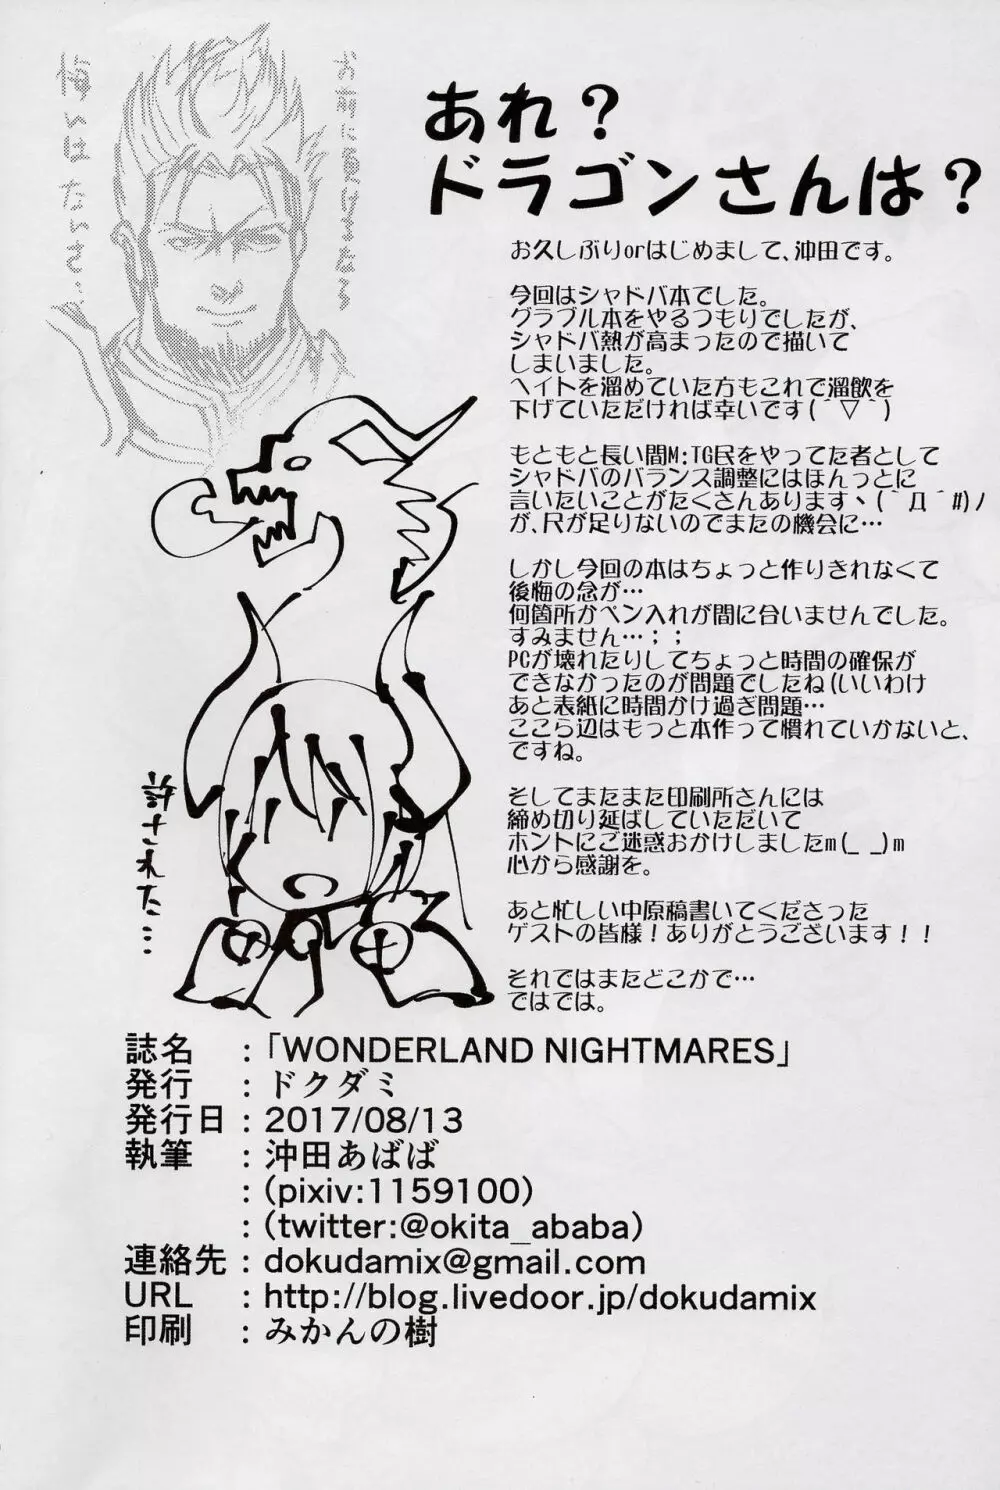 お前に負けるなら
悔いはないさ…
あれ？
ドラゴンさんは？
お久しぶりorはじめまして、沖田です。
今回はシャドバ本でした。
グラブル本をやるつもりでしたが、
シャドバ熱が高まったので描いて
しまいました。
ヘイトを溜めていた方もこれで溜飲を
下げていただければ幸いです(´▽｀)
もともと長い間M:TG民をやってた者として
シャドバのバランス調整にはほんっとに
言いたいことがたくさんありますヽ(｀Д´#)ﾉ
が、尺が足りないのでまたの機会に…
しかし今回の本はちょっと作りきれなくて
後悔の念が…
何箇所かペン入れが間に合いませんでした。
すみません…；；
PCが壊れたりしてちょっと時間の確保が
できなかったのが問題でしたね(いいわけ
あと表紙に時間かけ過ぎ問題…
ここら辺はもっと本作って慣れていかないと、
ですね。
そしてまたまた印刷所さんには
締め切り延ばしていただいて
ホントにご迷惑おかけしましたm(_ _)m
心から感謝を。
あと忙しい中原稿書いてくださった
ゲストの皆様！ありがとうございます！！
それではまたどこかで…
ではでは。
許された…
誌名：「WONDERLAND NIGHTMARES」
発行：ドクダミ
発行日：2017/08/13
執筆：沖田あばば
：(pixiv:1159100)
：(twitter:@okita_ababa)
連絡先：dokudamix@gmail.com
URL：http://blog.livedoor.jp/dokudamix
印刷：みかんの樹